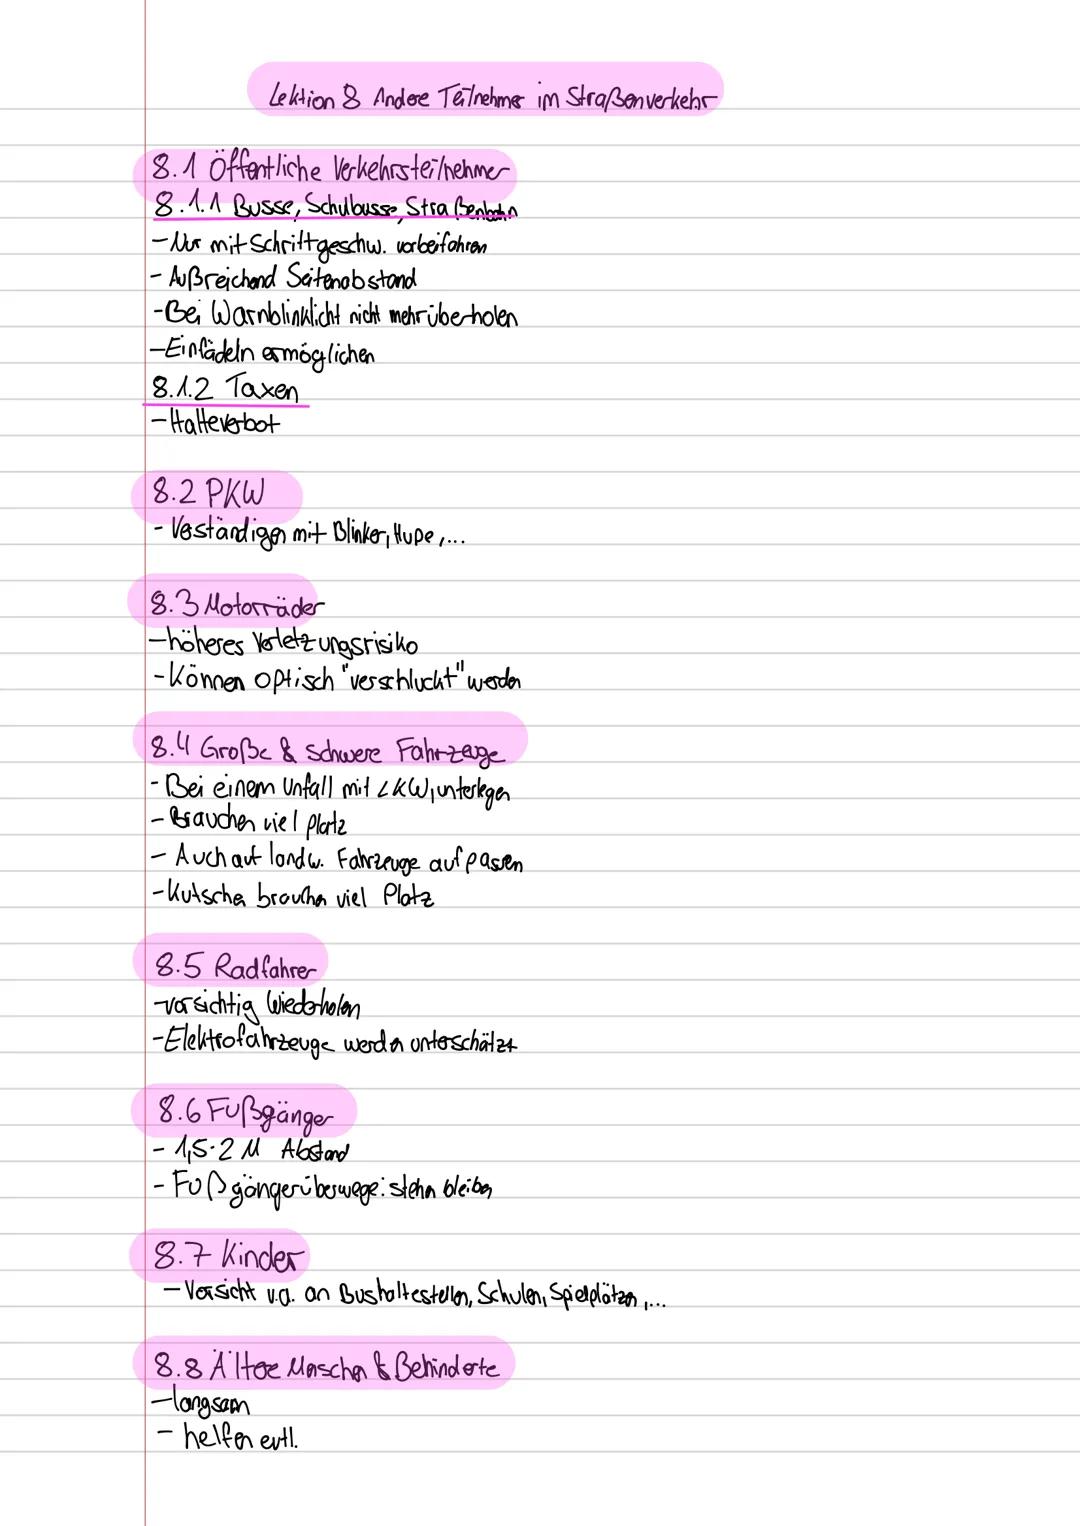 Lektion 8 Andere Teilnehmer im Straßenverkehr
8.1 Öffentliche Verkehrsteilnehmer
8.1.1 Busse, Schulbusse, Straßenbahn
- Nur mit Schrittgeschw. vorbeifahren
- Außreichend Seitenabstand
- Bei Warnblinklicht nicht mehr überholen
- Einfädeln ermöglichen
8.1.2 Taxen
- Halteverbot
8.2 PKW
- Verständigen mit Blinker, Hupe,...
8.3 Motorräder
- höheres Verletzungsrisiko
- Können optisch "verschluckt" werden
8.4 Große & schwere Fahrzeuge
- Bei einem Unfall mit LKW, unterlegen
- Brauchen viel Platz
- Auch auf landw. Fahrzeuge aufpassen
- Kutschen brauchen viel Platz
8.5 Radfahrer
- vorsichtig Wiederholen
- Elektrofahrzeuge werden unterschätzt
8.6 Fußgänger
- 1,5-2 M Abstand
- Fußgängerüberwege: stehn bleiben
8.7 Kinder
- Vorsicht v.a. an Bushaltestellen, Schulen, Spielplätzen,...
8.8 Ältere Menschen & Behinderte
- langsam
- helfen evtl.